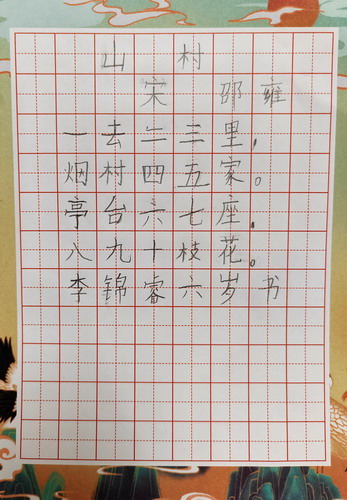 山村
宋 邵雍
一去二三里，
烟村四五家。
亭台六七座，
八九十枝花。
李锦睿六岁书